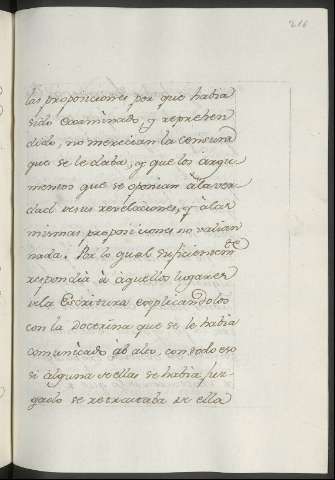 216
las proposiciones por que habia
sido examinado, y reprehen
dido, no merecian la censura
que se le daba, y que los argu
mentos que se oponian à la ver
dad de sus revelaciones, y à las
mismas proposiciones no valian
nada. Por lo qual suficientem.te
respondia à aquellos lugares
de la Escritura explicandolos
con la Doctrina que se le habia
comunicado ab alto, con todo eso
si alguna de ellas se habia juz-
gado se retrataba de ella